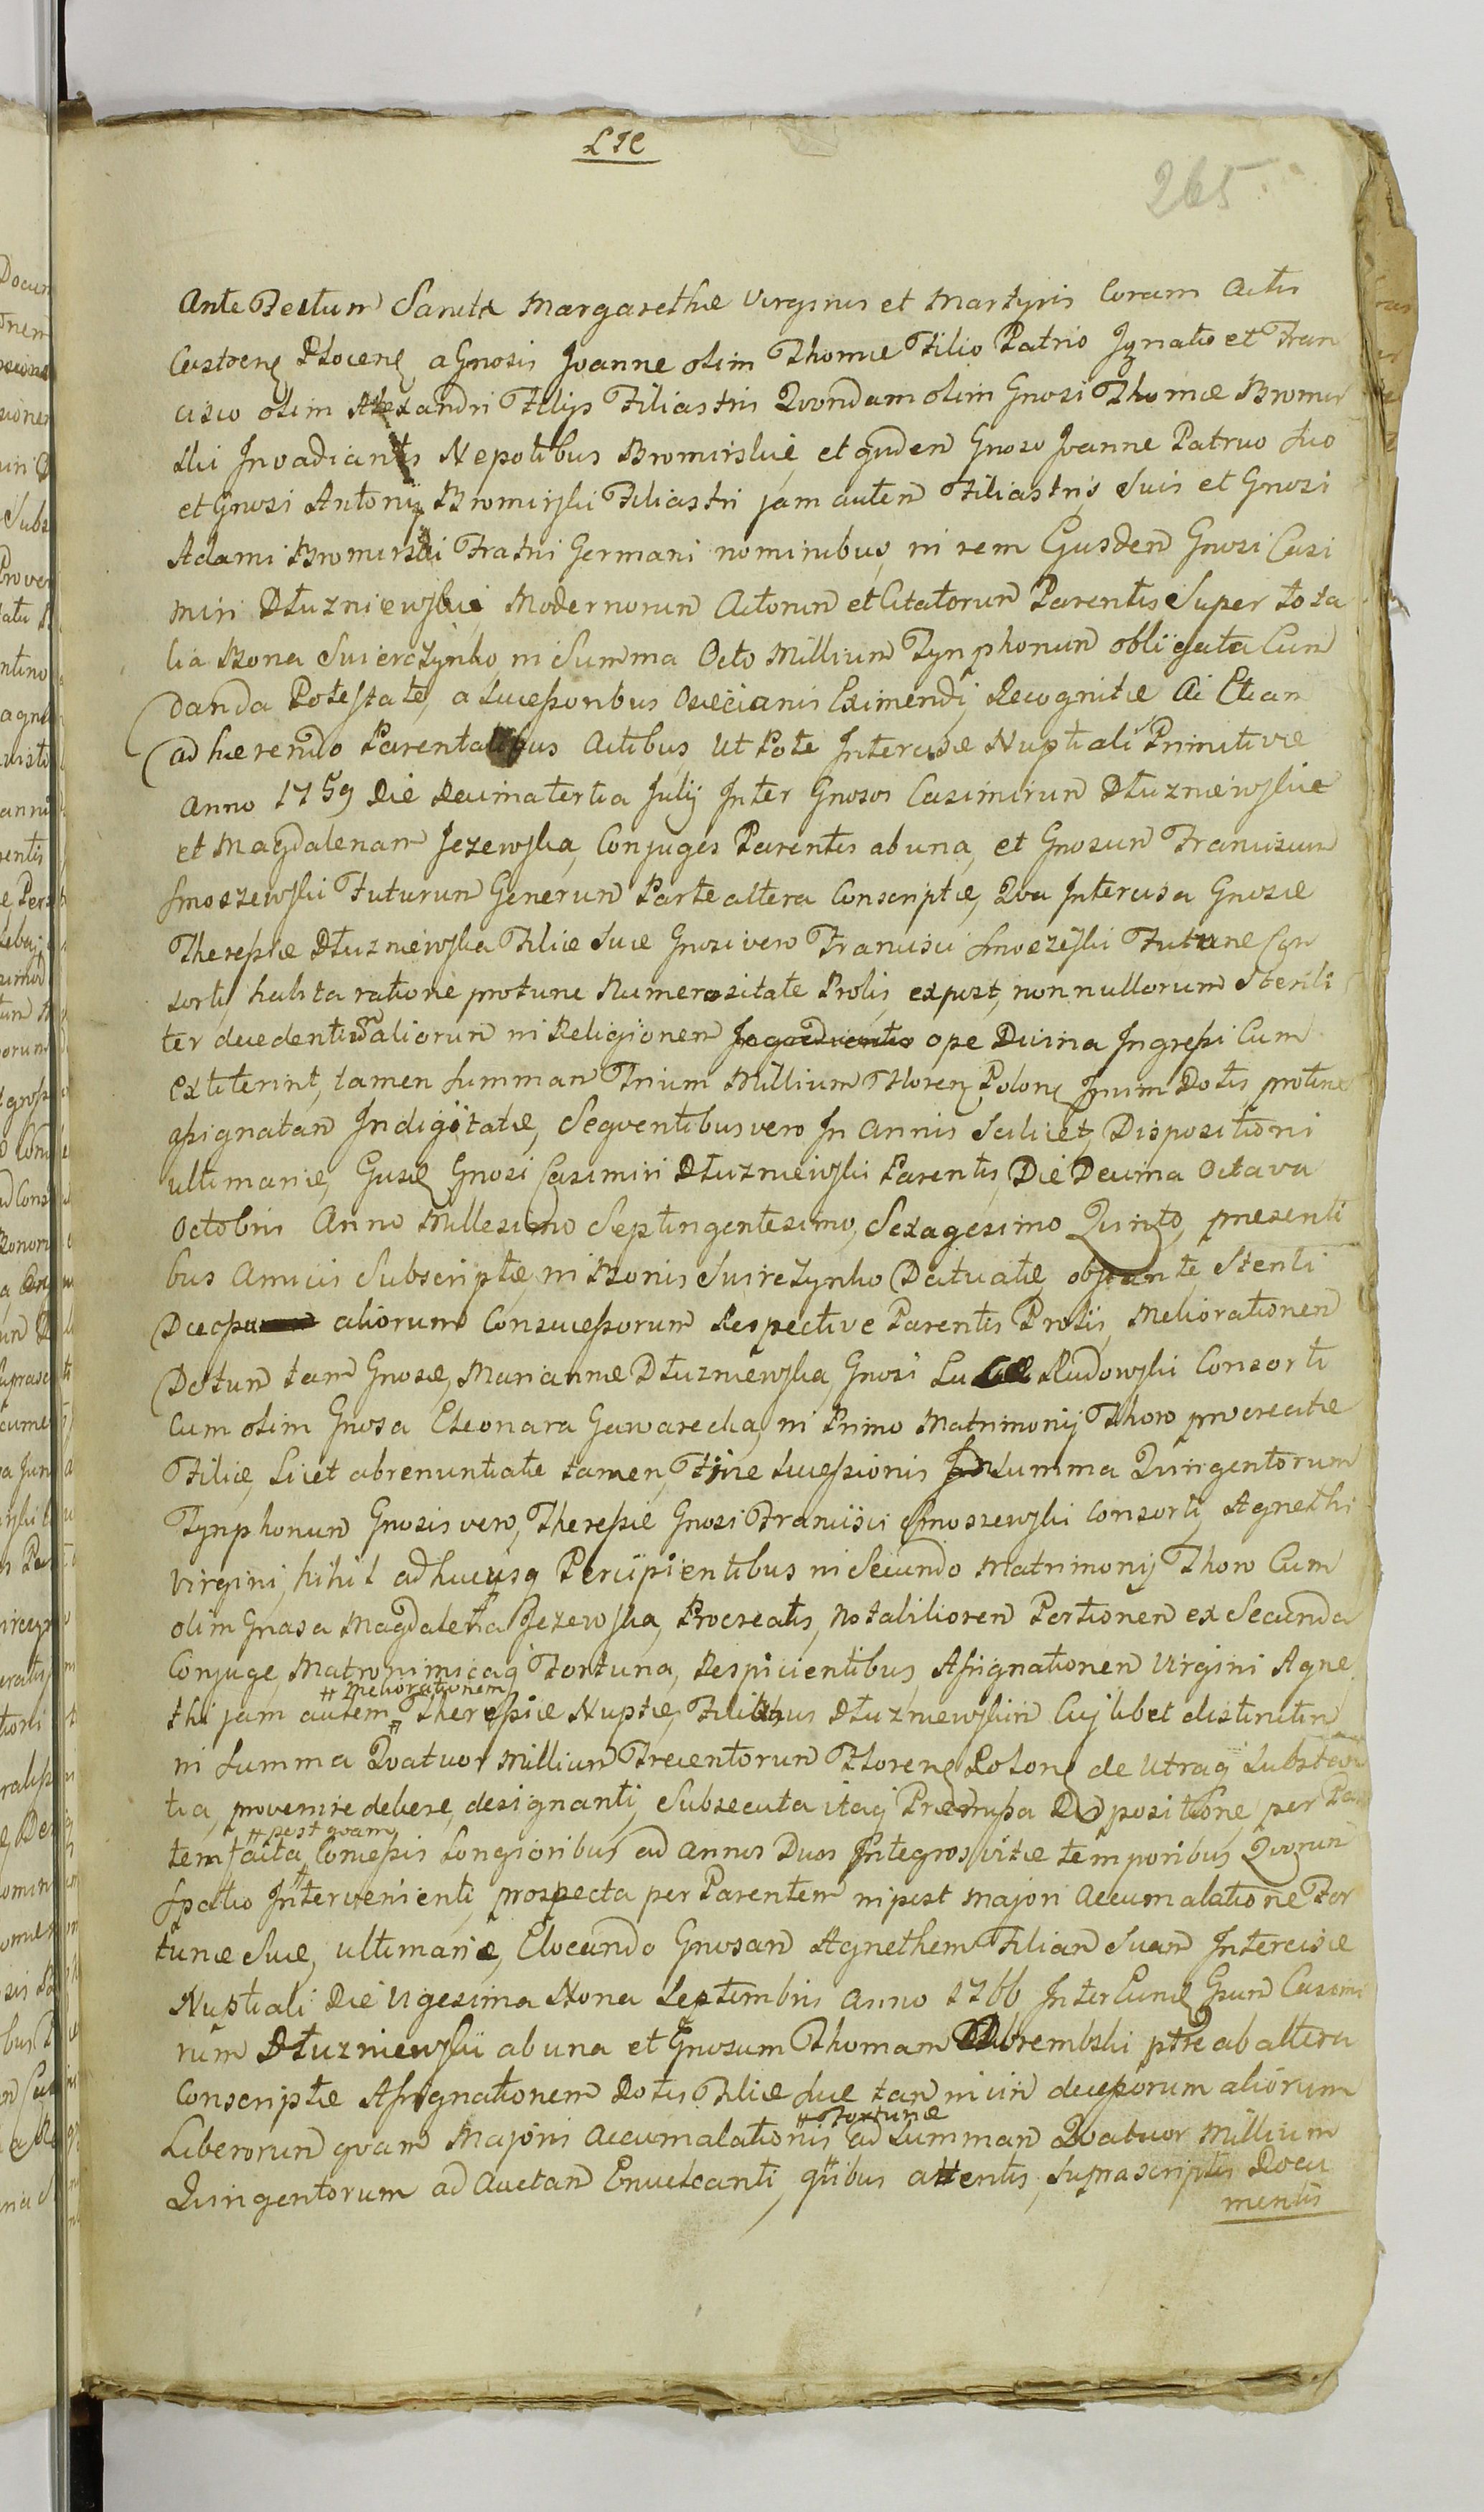 LIC
265
Ante Festum Sanctæ Margarethæ Virginis et Martyris Coram Actis
Castren Plocen a Gnosis Joanne olim Thomæ Filio Patrio Ignatio et Fran
cisco olim Alexandri Filijs Filiastris Qvondam olim Gnosi Thomæ Bromir
ski Invadiantis Nepotibus Bromirskie et qvidem Gnoso Joanne Patruo suo
et Gnosi Antonij Bromirski Filiastri jam autem Filiastris Suis et Gnosi
Adami Bromirski Fratri Germani nominibus, in rem Ejusdem Gnosi Casi
miri Dłuzniewskie Modernorum Actorum et Citatorum Parentis Super tota
lia Bona Swierczynko in Summa Octo Millium Tynphonum obligata Cum
danda Potestate, a Sucessoribus Osiecianis Eximendi, Recognitæ Ac Etiam
adhærendo Parentalibus Actibus, ut Pote Intercisæ Nuptiali Primitivæ
Anno 1759 Die Decimatertia Julij Inter Gnosos Casimirum Dłuzniewskie
et Magdalenam Jezewska, Conjuges Parentes ab una, et Gnosum Franciscum
Smoszewski Futurum Generum Parte altera Conscriptæ, Qva Intercisa Gnosæ
Theressiæ Dłuzniewska Filiæ Suæ Gnosi vero Francisci Smoszewski Futuræ Con
sorti, habita ratione protunc Numerositate Prolis, expost, non nullorum Sterili
ter decedentium aliorum in Religionem ope Divina Ingressi Cum
extiterint, tamen Summam Trium Millium Floren Polon Inim Dotis, protunc
assignatam Indigitatæ, Seqventibus vero In Annis Scilicet, Dispositioni
ultimariæ, Ejusd Gnosi Casimiri Dłuzniewski Parentis, Die Decima Octava
Octobris Anno Millesimo Septingentesimo, Sexagesimo Qvinto, presenti
bus Amicis Subscriptæ, in Bonis Swierczynko Datuatæ, obstante, Sterili
aliorum Consucessorum Respective Parentis Prolis, Meliorationem
Dotum tam Gnosæ, Mariannæ Dłuzniewska, Gnosi Lucæ Rudowski Consorti
Cum olim Gnosa Eleonara Gawarecka, in Primo Matrimonij Thoro procreatæ
Filiæ, Licet abrenuntiatæ tamen, Fine Sucessionis Summa Quingentorum
Tynphonum Gnosis vero, Theressiæ Gnosi Francisci Smoszewski Consorti, Agnethi
Virgini, Nihil adhucusq Percipientibus in Secundo Matrimonij Thoro Cum
olim Gnosa Magdalena Jezewska, Procreatis, Notabiliorem Portionem ex Secunda
Conjuge, Matronimicaq Fortuna, Respicientibus, Assignationem Virgini Agne
# meliorationem
thi jam autem # Theressiæ Nuptiæ, Filiabus Dłuzniewskim Cujlibet distinctim
in Summa Qvatuor Millium Trecentorum Floren Polon de Utraq Substan
tia, provenire debere, designanti, Subsecuta itaq Præmissa Dispositione, per Paren
# post qvam
tem facta, Concessis Longioribus ad Annos Duos Integros, vitæ temporibus, Qvorum
Spatio Intervenienti, prospecta per Parentem in post majori Accumalatione For
tunæ Suæ, ultimariæ, Elocando Gnosam Agnethem Filiam Suam Intercisiæ
Nuptiali Die Vigesima Nona Septembris Anno 1766 Inter Eund Gsum Casimi
rum Dłuzniewskii ab una et Gnosum Thomam Dembski pte ab altera
Conscriptæ Assignationem Dotis Filiæ Suæ tam in vim decessorum aliorum
# Fortunæ
Liberorum qvam Majoris Accumalationis ad Summam Qvatuor Millium
Quingentorum ad Auctam Enucleanti, quibus attentis, Suprascriptis Docu
mentis